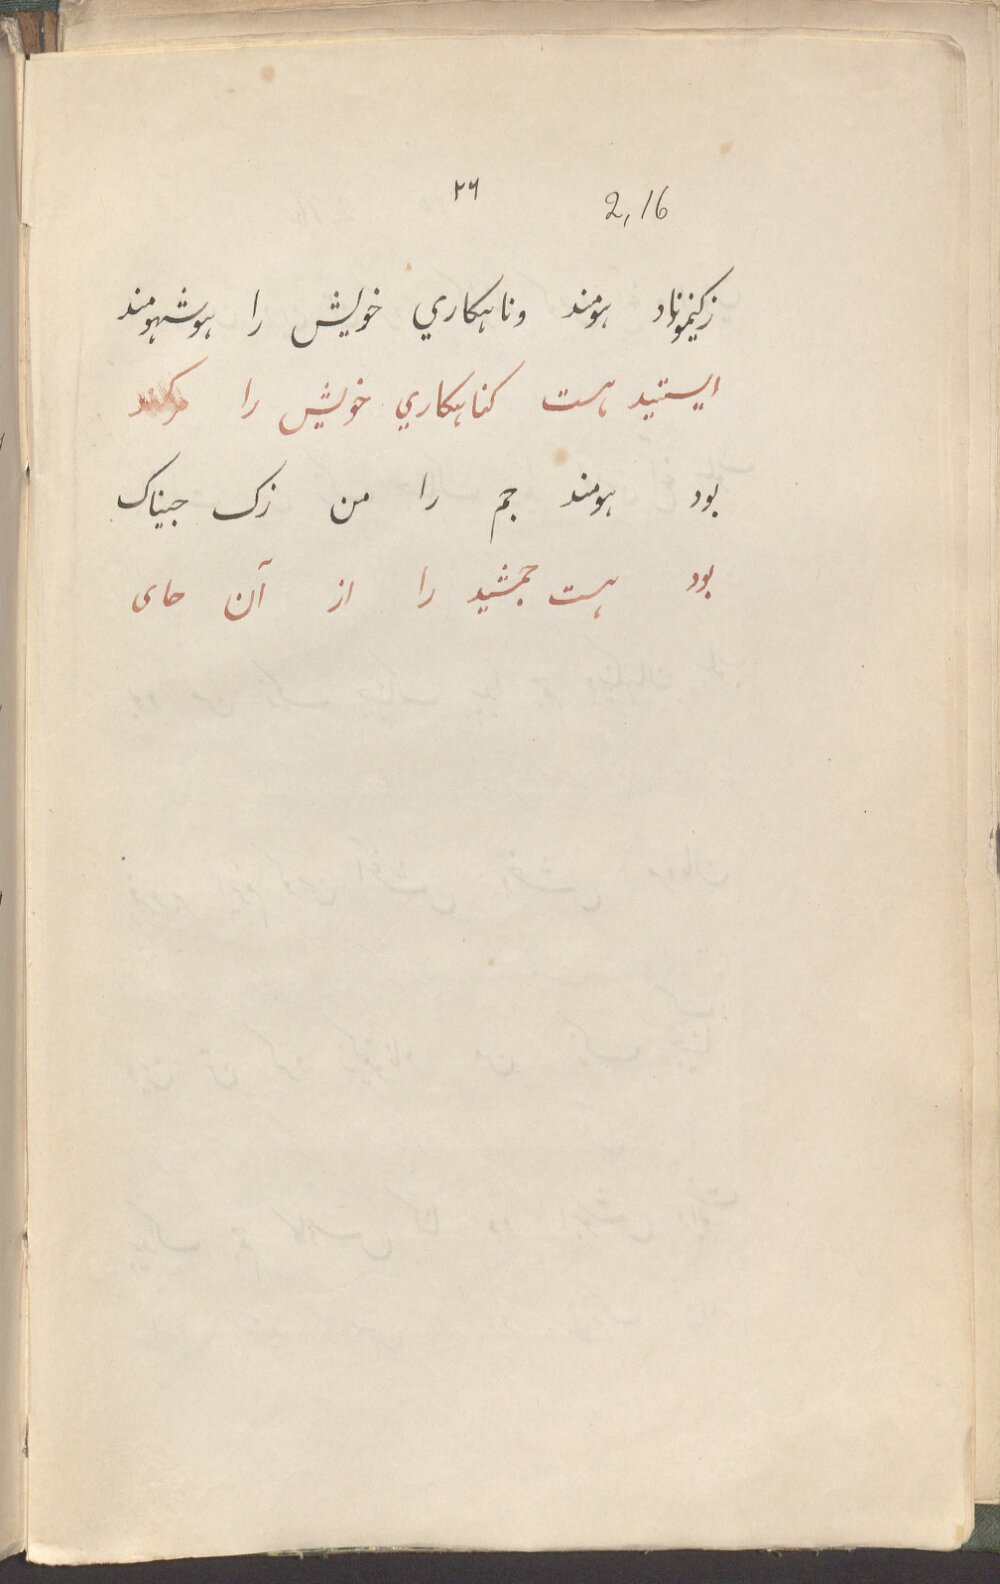 ۲۶
2,16
زکیمونناد هومند وناهکاري خویش را هوشهومند
ایستید هست کناهکاري خویش را
بود هومند جم را من زک جیناک
بود هست جمشید را از آن جای